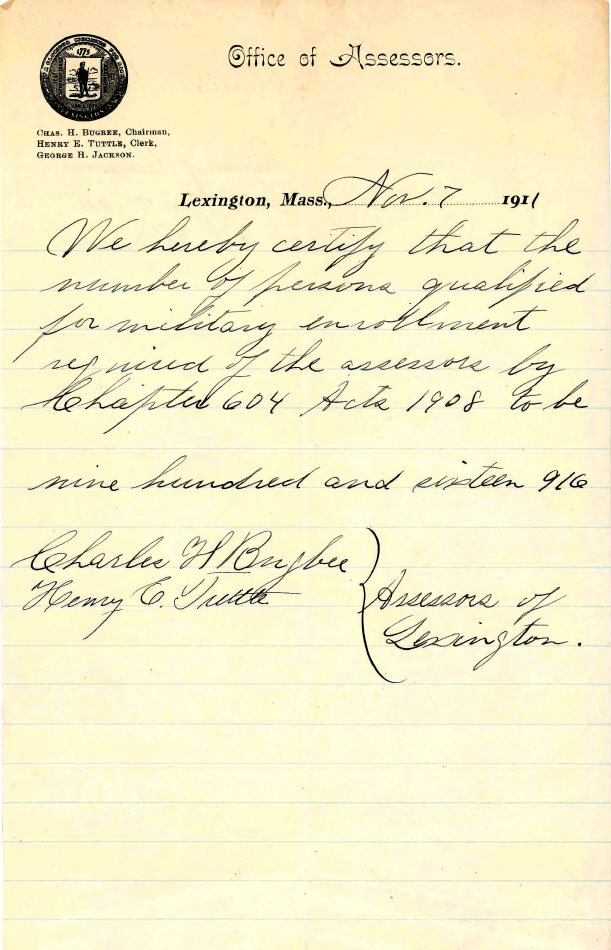 Office of Assessors.
1775
LEXINGTON
CHAS. H. BUGBEE, Chairman,
HENRY E. TUTTLE, Clerk,
GEORGE H. JACKSON.
Lexington, Mass., Nov. 7 1911
We hereby certify that the
number of persons qualified
for military enrollment
required of the assessors by
Chapter 604 Acts 1908 to be
nine hundred and sixteen 916
Charles H Bugbee
Henry E. Tuttle
Assessors of
Lexington.